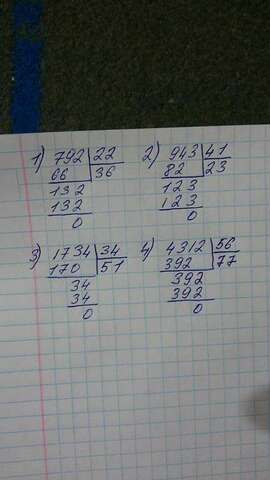 1) 792 | 22
66 | 36
132
132
0
2) 943 | 41
82 | 23
123
123
0
3) 1734 | 34
170 | 51
34
34
0
4) 4312 | 56
392 | 77
392
392
0